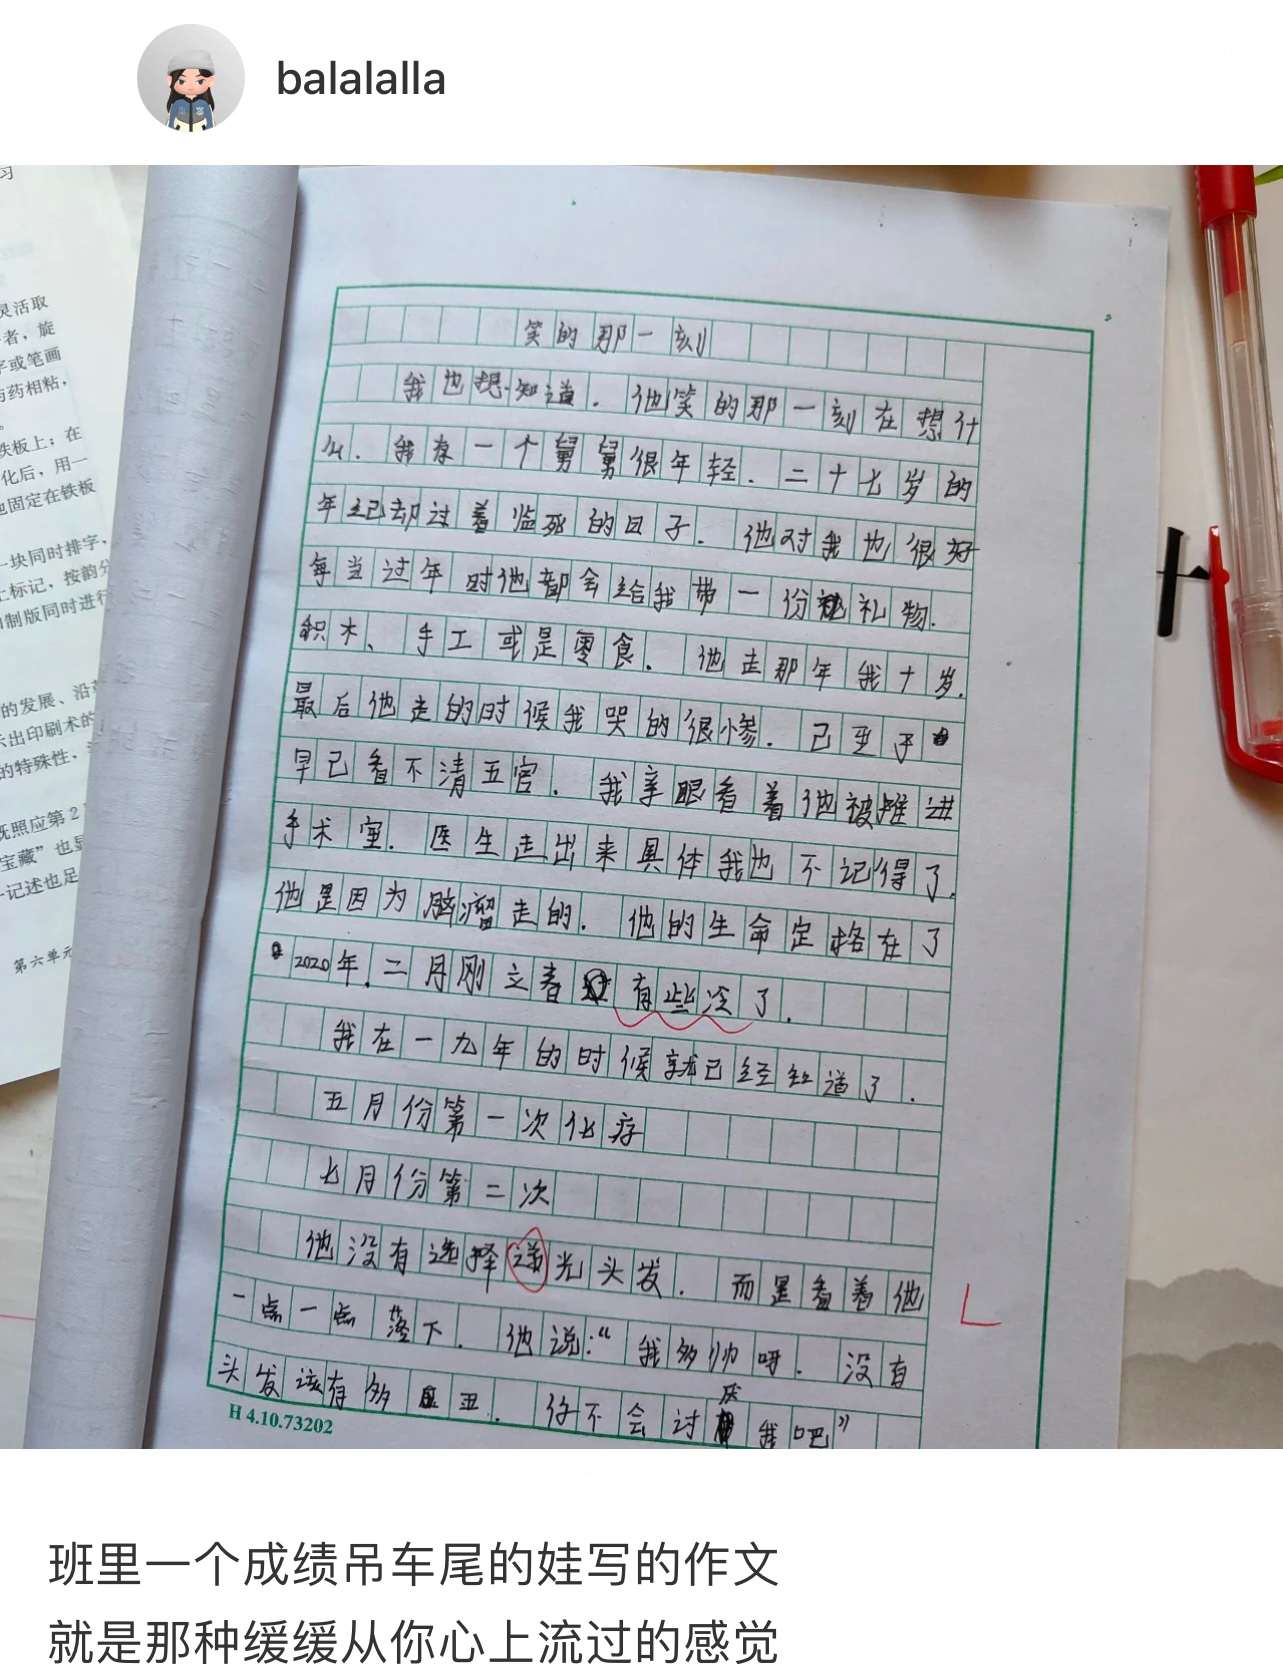 balalalla
习
灵活取
者，旋
字或笔画
药相粘，
铁板上；在
化后，用一
也固定在铁板
一块同时排字，
上标记，按韵分
制版同时进行
的发展、沿
出印刷术的
的特殊性，
既照应第2
宝藏”也显
记述也足
第六单元
笑的那一刻
我也想知道．他笑的那一刻在想什
么．我有一个舅舅很年轻．二十七岁的
年纪却过着临死的日子．他对我也很好
每当过年时他都会给我带一份礼物．
积木、手工或是零食．他走那年我十岁．
最后他走的时候我哭的很惨．已至于
早已看不清五官．我亲眼看着他被推进
手术室．医生走出来具体我也不记得了．
他是因为脑瘤走的．他的生命定格在了
2020年．二月刚立春有些冷了．
我在一九年的时候就已经知道了．
五月份第一次化疗
七月份第二次
他没有选择光头发．而是看着他
一点一点落下．他说：“我多帅呀．没有
头发该有多丑．你不会讨厌我吧”
H 4.10.73202
班里一个成绩吊车尾的娃写的作文
就是那种缓缓从你心上流过的感觉